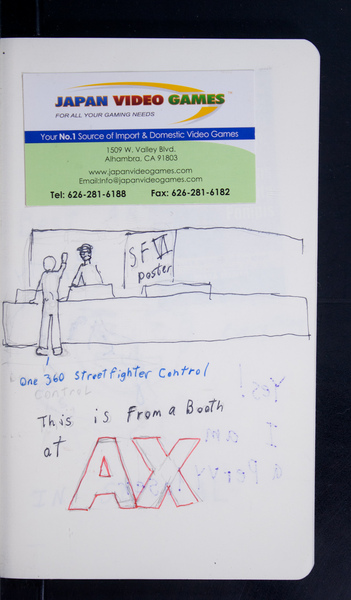 JAPAN VIDEO GAMES™
FOR ALL YOUR GAMING NEEDS
Your No.1 Source of Import & Domestic Video Games
1509 W. Valley Blvd.
Alhambra, CA 91803
www.japanvideogames.com
Email:info@japanvideogames.com
Tel: 626-281-6188 Fax: 626-281-6182
SF VI
poster
One 360 Streetfighter Control
Control
This is From a Booth
at AX
Yes!
I am
a Pervy